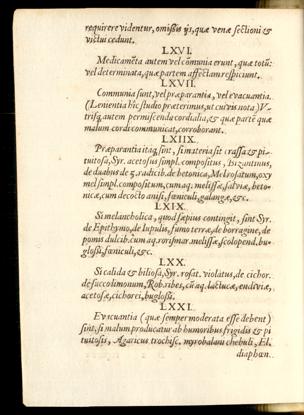 requirere videntur, omißis ijs, quæ venæ sectioni &
victui cedunt.
LXVI.
Medicamẽta autem vel cõmunia erunt, quæ totũ:
vel determinata, quæ partem affectam respiciunt.
LXVII.
Communia sunt, vel præparantia, vel evacuantia.
(Lenientia hîc studio præterimus, ut cuivis nota) V-
trisq; autem permiscenda cordialia, & quæ partẽ quæ
malum cordi communicat, corroborant.
LXIIX.
Præparantia itaq; sint, si materia sit crassa & pi-
tuitosa, Syr. acetosus simpl. compositus, Bizantinus,
de duabus & 5. radicib. de betonica, Mel rosatum, oxy
mel simpl. compositum, cum aq. melissæ, salviæ, beto-
nicæ, cum decocto anisi, fœniculi, galangæ, &c.
LXIX.
Si melancholica, quod sæpius contingit, sint Syr.
de Epithymo, de lupulis, fumo terræ, de borragine, de
pomis dulcib. cum aq. rorismar. melissæ, scolopend. bu-
glossũ, fœniculi, &c.
LXX.
Si calida & biliosa, Syr. rosat. violatus, de cichor.
de succo limonum, Rob. ribes, cũ aq. lactucæ, endiviæ,
acetosæ, cichorei, buglossũ.
LXXI.
Evacuantia (quæ semper moderata esse debent)
sint, si malum producatur ab humoribus frigidis & pi
tuitosis, Agaricus trochisc. myrobalani chebuli, El.
diaphœn.